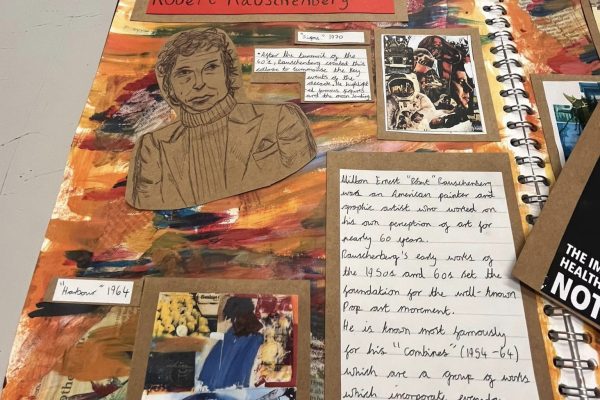 Robert Rauschenberg
"Signs" 1970
"After the turmoil of the
60's, Rauschenberg created this
collage to summarise the key
events of the
decade. He highlight
ed famous figures
and the moon landing
Milton Ernest "Bob" Rauschenberg
was an American painter and
graphic artist who worked on
his own perception of art for
nearly 60 years.
Rauschenberg's early works of
the 1950s and 60s set the
foundation for the well-known
Pop art movement.
He is known most famously
for his "Combines" (1954-64)
which are a group of works
which incorporate everyday
"Harbour" 1964
THE IM
HEALTH
NOT